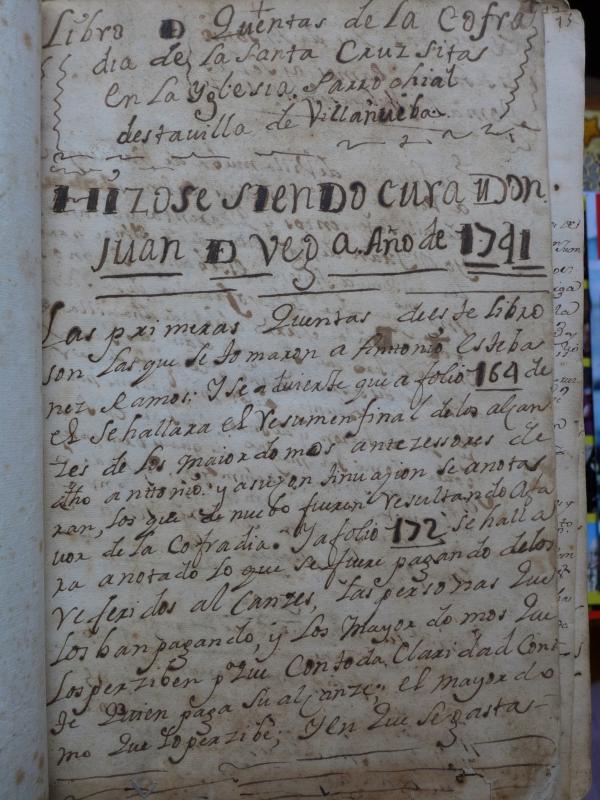 Libro D Quentas de La Cofra
dia de la Santa Cruz sitas
en La yglesia Parrochial
destavilla de Villanueba
Hizose siendo cura Don
Juan D Vega. Año de 1741
Las primeras Quentas deeste Libro
son Las que se tomaron a Antonio Esteba
nez Ramos: y se advierte que a folio 164 de
el se hallara el Resumen final de los alcan
zes de los maiordomos antezessores de
dho antonio: y a su continuazion se anota
ran, los que de nuebo fueren Resultando afa
vor de la Cofradia. Y a folio 172 se halla
ra anotado lo que se fuere pagando delos
Referidos alcanzes, las personas que
Los ban pagando, y Los Mayordomos que
Los perziben pa. que Contoda Claridad Cons
te Quien paga su alcanze; el mayordo
mo que lo perzibe; y en que se gasta-